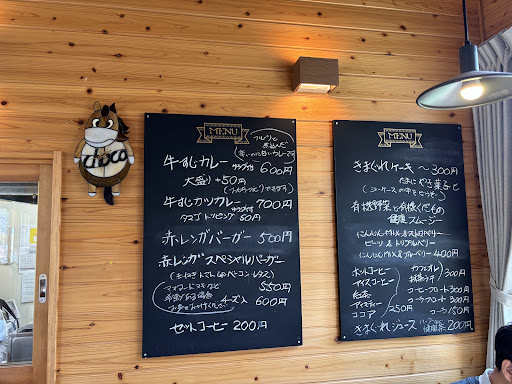 choco
MENU
牛すじカレー サラダ付 600円
大盛り +50円
牛すじカツカレー サラダ付 700円
タマゴ トッピング 50円
赤レンガバーガー 500円
赤レンガスペシャルバーガー
(玉ねぎ トマト ベーコン レタス)
550円
チーズ入 600円
セットコーヒー 200円
MENU
きまぐれケーキ 〜300円
たまに やき菓子も
(ショーケースの中をどうぞ)
有機野菜と有機くだもの
健康スムージー
にんじん
ビーツ & トリプルベリー
ブルーベリー 400円
ホットコーヒー
アイスコーヒー
紅茶
アイスティー
ココア
250円
カフェオレ
抹茶ラテ
300円
コーヒーフロート 300円
コーラフロート 300円
コーラ 150円
きまぐれジュース 健康茶 200円